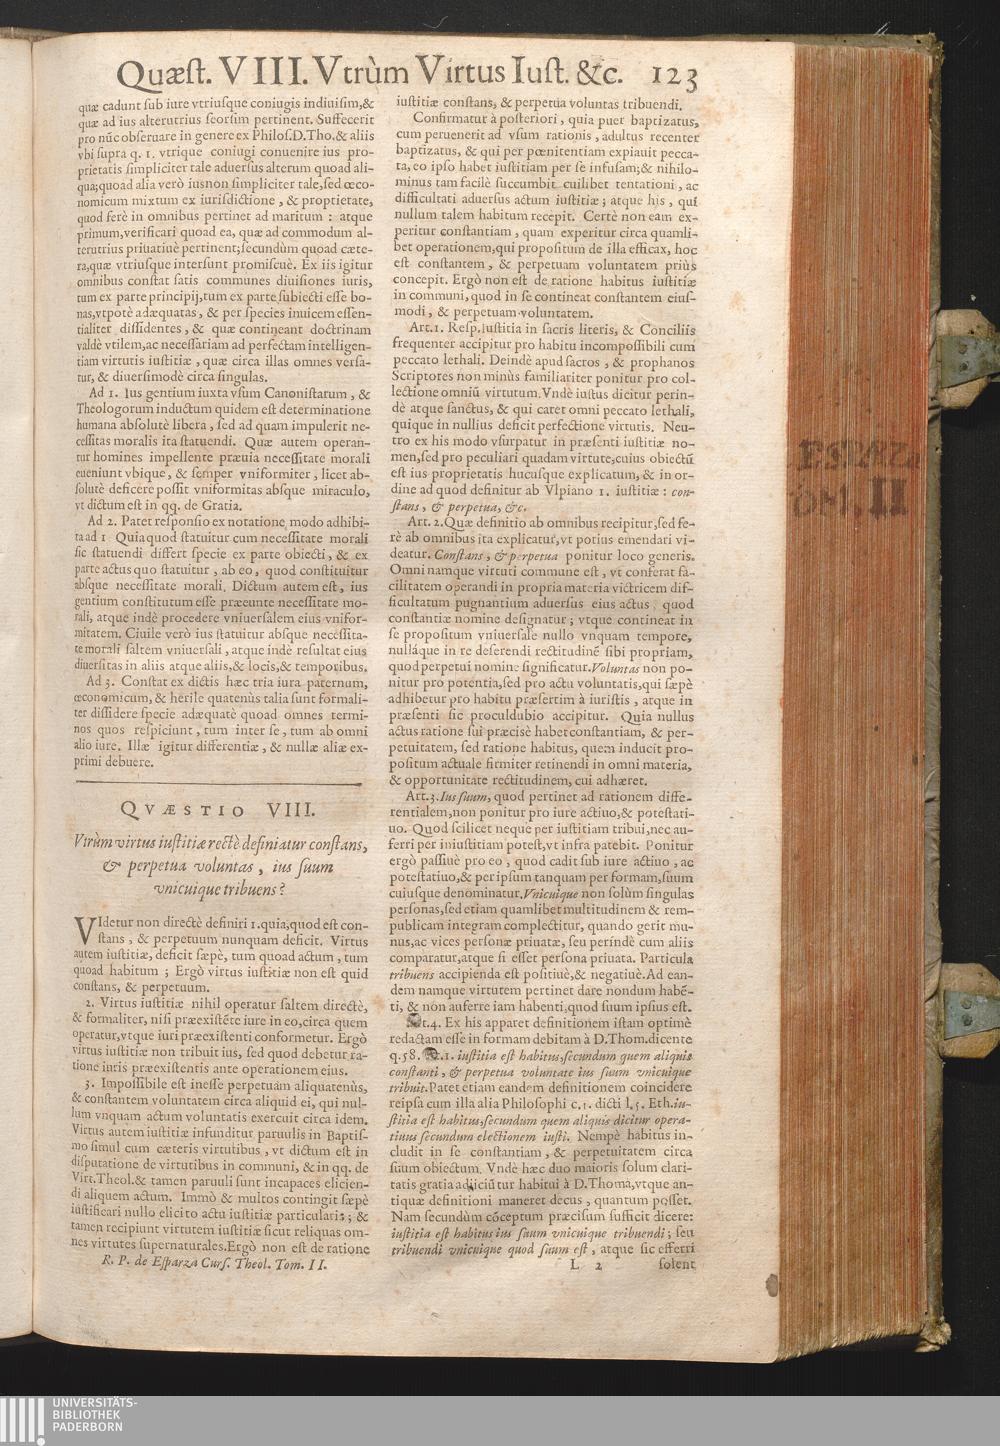 Quæst. VIII. Vtrùm Virtus Iust. &c. 123
quæ cadunt sub iure vtriusque coniugis indiuisim,&
quæ ad ius alterutrius seorsim pertinent. Suffecerit
pro nūc obseruare in genere ex Philos.D.Tho.& aliis
vbi supra q. 1. vtrique coniugi conuenire ius pro-
prietatis simpliciter tale aduersus alterum quoad ali-
qua;quoad alia verò ius non simpliciter tale,sed œco-
nomicum mixtum ex iurisdictione , & proprietate,
quod ferè in omnibus pertinet ad maritum : atque
primum,verificari quoad ea, quæ ad commodum al-
terutrius priuatiuè pertinent;secundùm quoad cæte-
ra,quæ vtriusque intersunt promiscuè. Ex iis igitur
omnibus constat satis communes diuisiones iuris,
tum ex parte principij,tum ex parte subiecti esse bo-
nas,vtpotè adæquatas, & per species inuicem essen-
tialiter dissidentes , & quæ contineant doctrinam
valdè vtilem,ac necessariam ad perfectam intelligen-
tiam virtutis iustitiæ , quæ circa illas omnes versa-
tur, & diuersimodè circa singulas.
Ad 1. Ius gentium iuxta vsum Canonistarum , &
Theologorum inductum quidem est determinatione
humana absolutè libera , sed ad quam impulerit ne-
cessitas moralis ita statuendi. Quæ autem operan-
tur homines impellente præuia necessitate morali
eueniunt vbique , & semper vniformiter , licet ab-
solutè deficere possit vniformitas absque miraculo,
vt dictum est in qq. de Gratia.
Ad 2. Patet responsio ex notatione modo adhibi-
ta ad 1 Quia quod statuitur cum necessitate morali
sic statuendi differt specie ex parte obiecti , & ex
parte actus quo statuitur , ab eo, quod constituitur
absque necessitate morali. Dictum autem est , ius
gentium constitutum esse præeunte necessitate mo-
rali, atque indè procedere vniuersalem eius vnifor-
mitatem. Ciuile verò ius statuitur absque necessita-
te morali saltem vniuersali , atque indè resultat eius
diuersitas in aliis atque aliis,& locis,& temporibus.
Ad 3. Constat ex dictis hæc tria iura paternum,
œconomicum, & herile quatenùs talia sunt formali-
ter dissidere specie adæquatè quoad omnes termi-
nos quos respiciunt , tum inter se , tum ab omni
alio iure. Illæ igitur differentiæ , & nullæ aliæ ex-
primi debuere.
QVÆSTIO VIII.
Vtrùm virtus iustitiæ rectè definiatur constans,
& perpetua voluntas , ius suum
vnicuique tribuens?
VIdetur non directè definiri 1.quia,quod est con-
stans , & perpetuum nunquam deficit. Virtus
autem iustitiæ, deficit sæpè, tum quoad actum , tum
quoad habitum ; Ergò virtus iustitiæ non est quid
constans, & perpetuum.
2. Virtus iustitiæ nihil operatur saltem directè,
& formaliter, nisi præexistēte iure in eo,circa quem
operatur,vtque iuri præexistenti conformetur. Ergò
virtus iustitiæ non tribuit ius, sed quod debetur ra-
tione iuris præexistentis ante operationem eius.
3. Impossibile est inesse perpetuam aliquatenùs,
& constantem voluntatem circa aliquid ei, qui nul-
lum vnquam actum voluntatis exercuit circa idem.
Virtus autem iustitiæ infunditur paruulis in Baptis-
mo simul cum cæteris virtutibus , vt dictum est in
disputatione de virtutibus in communi, & in qq. de
Virt.Theol.& tamen paruuli sunt incapaces elicien-
di aliquem actum. Immò & multos contingit sæpè
iustificari nullo elicito actu iustitiæ particularis; &
tamen recipiunt virtutem iustitiæ sicut reliquas om-
nes virtutes supernaturales.Ergò non est de ratione
R. P. de Esparza Curs. Theol. Tom. II.
iustitiæ constans, & perpetua voluntas tribuendi.
Confirmatur à posteriori , quia puer baptizatus,
cum peruenerit ad vsum rationis , adultus recenter
baptizatus, & qui per pœnitentiam expiauit pecca-
ta, eo ipso habet iustitiam per se infusam;& nihilo-
minus tam facilè succumbit cuilibet tentationi , ac
difficultati aduersus actum iustitiæ ; atque his , qui
nullum talem habitum recepit. Certè non eam ex-
peritur constantiam , quam experitur circa quamli-
bet operationem,qui propositum de illa efficax, hoc
est constantem , & perpetuam voluntatem priùs
concepit. Ergò non est de ratione habitus iustitiæ
in communi,quod in se contineat constantem eius-
modi , & perpetuam voluntatem.
Art.1. Resp.Iustitia in sacris literis, & Conciliis
frequenter accipitur pro habitu incompossibili cum
peccato lethali. Deindè apud sacros , & prophanos
Scriptores non minùs familiariter ponitur pro col-
lectione omniū virtutum.Vndè iustus dicitur perin-
dè atque sanctus, & qui caret omni peccato lethali,
quique in nullius deficit perfectione virtutis. Neu-
tro ex his modo vsurpatur in præsenti iustitiæ no-
men,sed pro peculiari quadam virtute,cuius obiectū
est ius proprietatis hucusque explicatum, & in or-
dine ad quod definitur ab Vlpiano 1. iustitiæ : con-
stans , & perpetua, &c.
Art. 2.Quæ definitio ab omnibus recipitur,sed fe-
rè ab omnibus ita explicatur,vt potius emendari vi-
deatur. Constans , & perpetua ponitur loco generis.
Omni namque virtuti commune est , vt conferat fa-
cilitatem operandi in propria materia victricem dif-
ficultatum pugnantium aduersus eius actus , quod
constantiæ nomine designatur ; vtque contineat in
se propositum vniuersale nullo vnquam tempore,
nulláque in re deserendi rectitudinē sibi propriam,
quod perpetui nomine significatur.Voluntas non po-
nitur pro potentia,sed pro actu voluntatis,qui sæpè
adhibetur pro habitu præsertim à iuristis , atque in
præsenti sic proculdubio accipitur. Quia nullus
actus ratione sui præcisè habet constantiam, & per-
petuitatem, sed ratione habitus, quem inducit pro-
positum actuale firmiter retinendi in omni materia,
& opportunitate rectitudinem, cui adhæret.
Art.3.Ius suum, quod pertinet ad rationem diffe-
rentialem,non ponitur pro iure actiuo,& potestati-
uo. Quod scilicet neque per iustitiam tribui,nec au-
ferri per iniustitiam potest,vt infra patebit. Ponitur
ergò passiuè pro eo , quod cadit sub iure actiuo , ac
potestatiuo,& per ipsum tanquam per formam,suum
cuiusque denominatur.Vnicuique non solùm singulas
personas,sed etiam quamlibet multitudinem & rem-
publicam integram complectitur, quando gerit mu-
nus,ac vices personæ priuatæ, seu perindè cum aliis
comparatur,atque si esset persona priuata. Particula
tribuens accipienda est positiuè,& negatiuè.Ad ean-
dem namque virtutem pertinet dare nondum habē-
ti, & non auferre iam habenti,quod suum ipsius est.
Art.4. Ex his apparet definitionem istam optimè
redactam esse in formam debitam à D.Thom.dicente
q.58. 1. iustitia est habitus,secundum quem aliquis
constanti , & perpetua voluntate ius suum vnicuique
tribuit.Patet etiam eandem definitionem coincidere
reipsa cum illa alia Philosophi c.5. dicti l.5. Eth.iu-
stitia est habitus,secundum quem aliquis dicitur opera-
tiuus secundum electionem iusti. Nempè habitus in-
cludit in se constantiam , & perpetuitatem circa
suum obiectum. Vndè hæc duo maioris solum clari-
tatis gratia adiiciūtur habitui à D.Thoma,vtque an-
tiquæ definitioni maneret decus , quantum posset.
Nam secundùm cōceptum præcisum sufficit dicere:
iustitia est habitus ius suum vnicuique tribuendi ; seu
tribuendi vnicuique quod suum est , atque sic efferri
L 2 solent
ESPARZA
TOM. II
UNIVERSITÄTS-
BIBLIOTHEK
PADERBORN